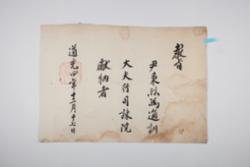 教旨
尹東絲爲通訓
大夫行司諫院
獻納者
道光四年十二月十七日